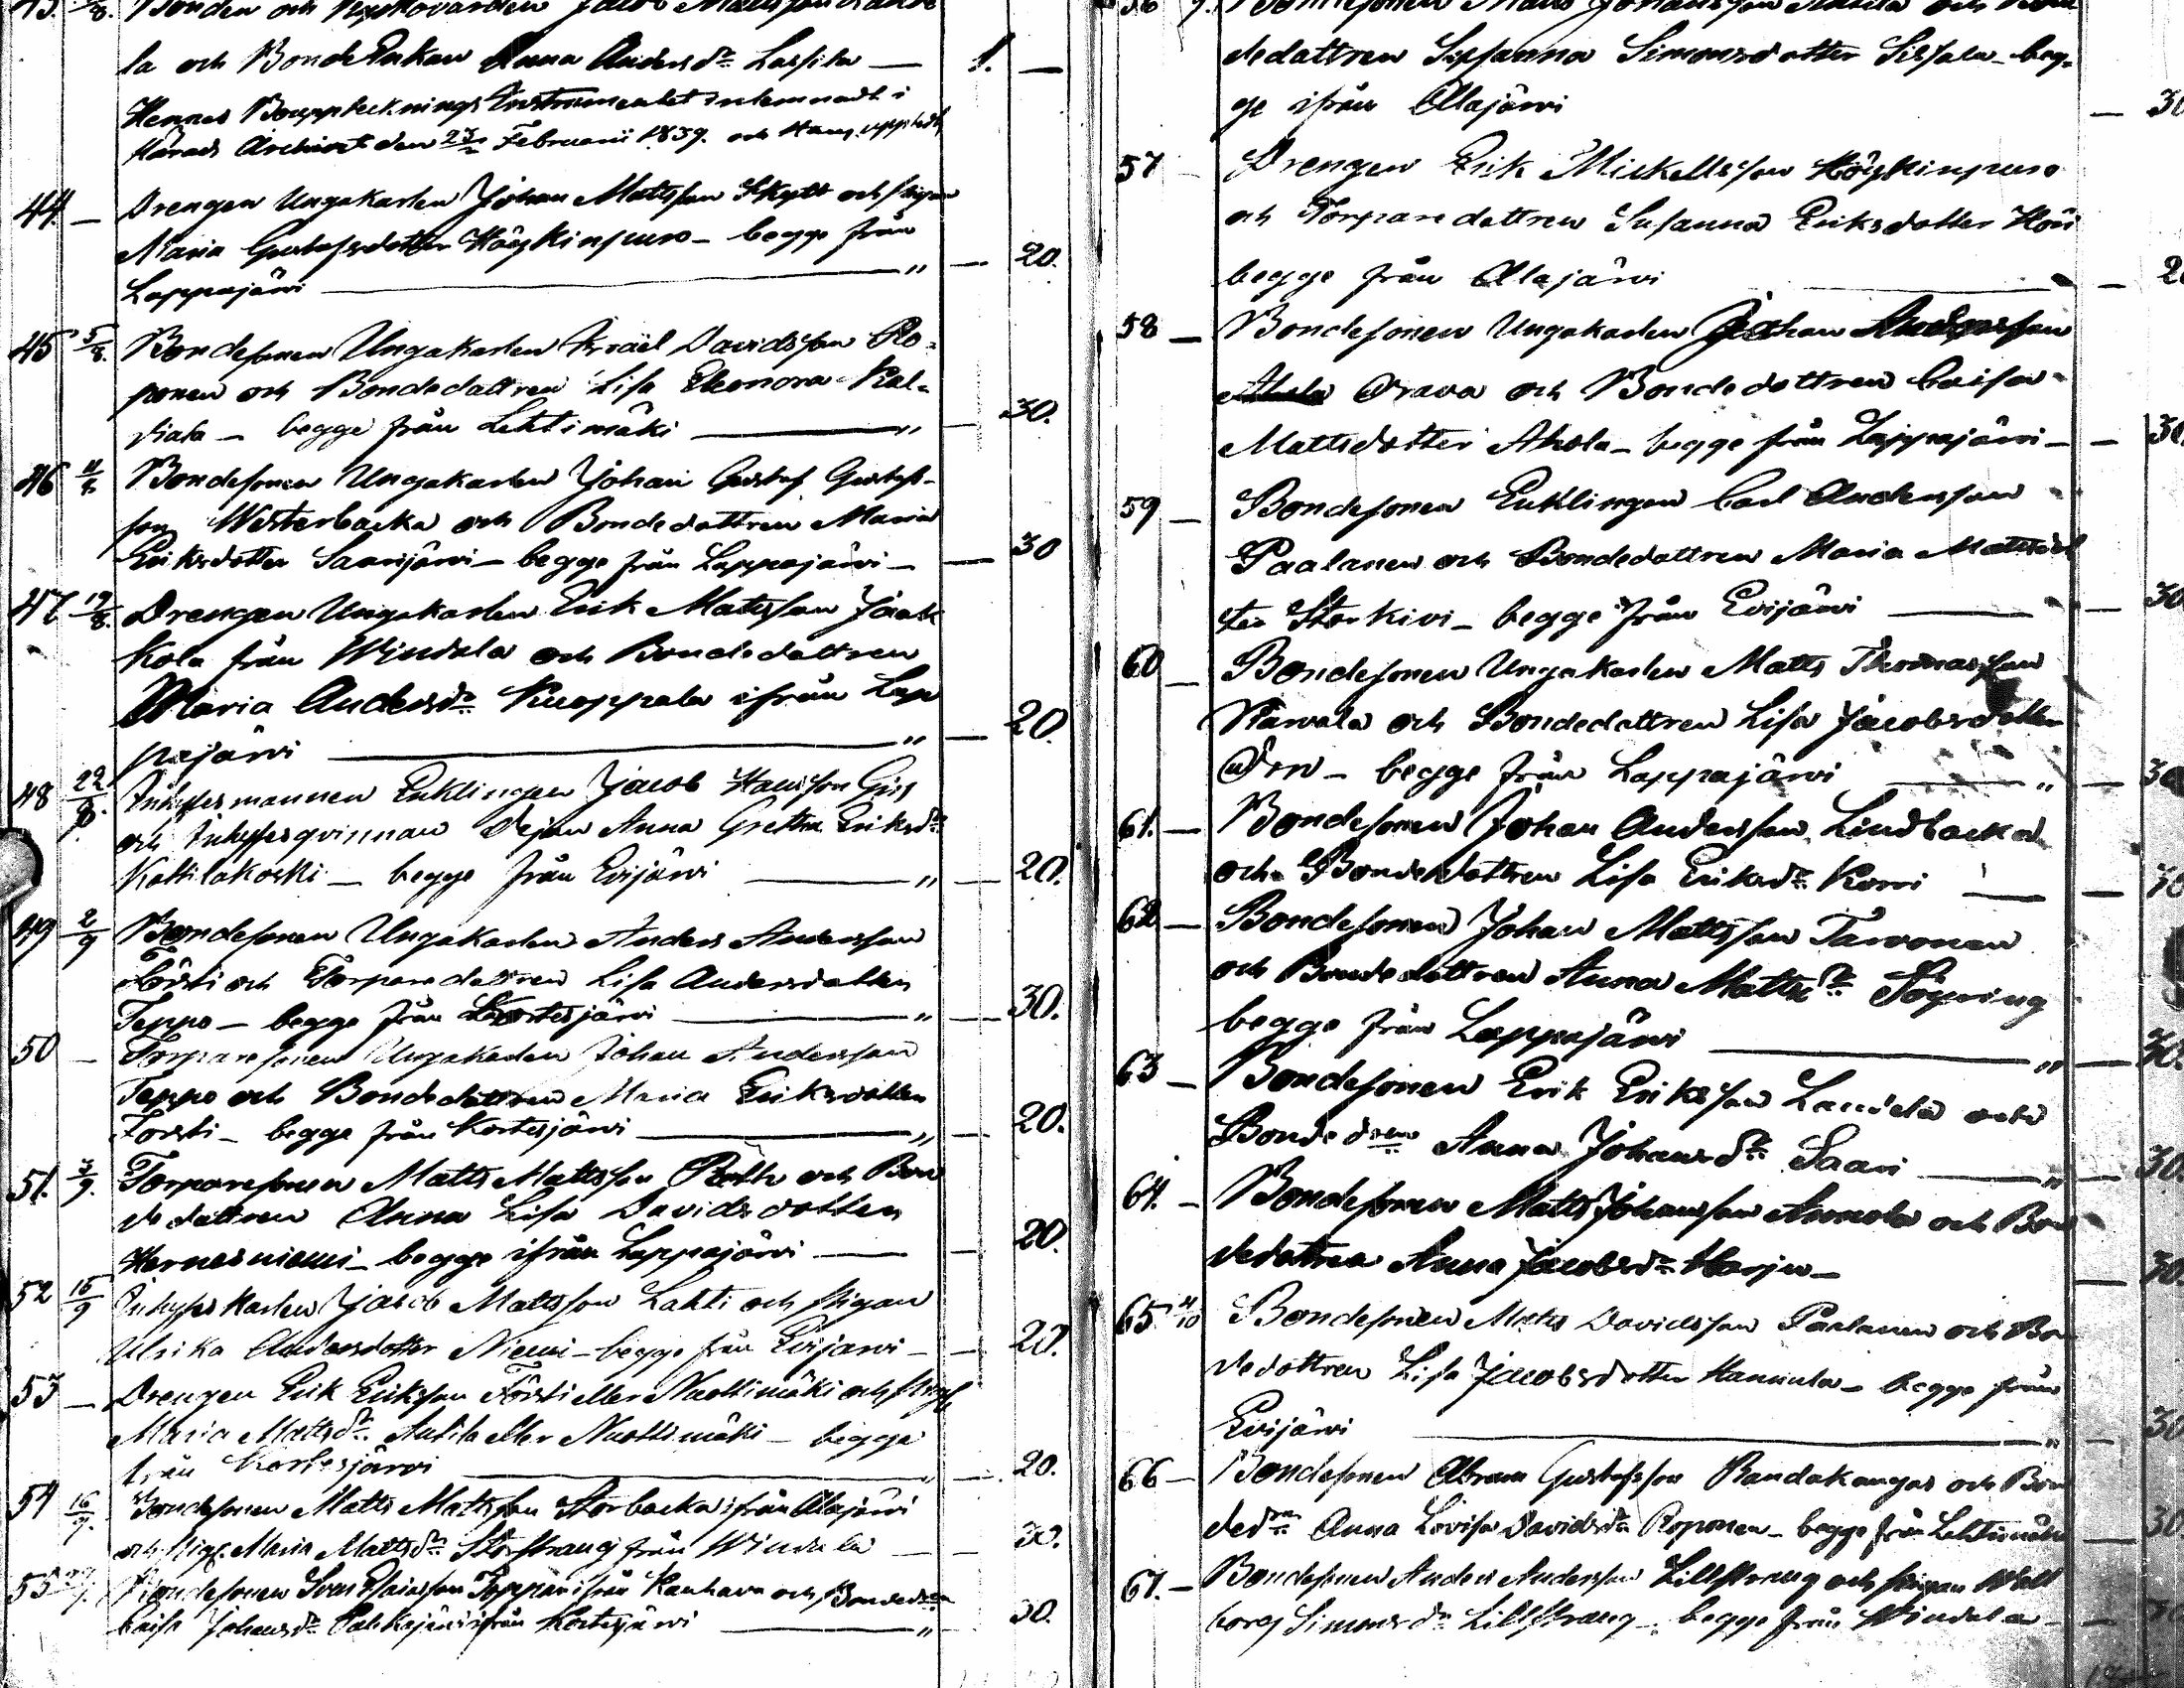 43. Bonden och Kyrkovärden Jacob Mattsson
la och BondeEnkan Anna Andersdr Lassila — 1. —
Hennes Boupptecknings Instrumentet inlemnadt i
Härads Archivet den 23 Februarii 1839. och Hans
44. — Drengen Ungakarlen Johan Mattsson Skytt och Pigan
Maria Gustafsdotter Höykinpuro — begge från
Lappajärvi — " — 20.
45 5/8. Bondesonen Ungakarlen Isräel Davidsson Ro-
ponen och Bondedattren Lisa Eleonora Kal-
viala — begge från Lehtimäki — " — 30.
46 Bondesonen Ungakarlen Johan Gustaf Gustafs-
son Westerbacka och Bondedattren Maria
Eriksdotter Saarijärvi — begge från Lappajärvi — — 30
47 19/8. Drengen Ungakarlen Erik Mattsson Jaak
kola från Windala och Bondedattren
Maria Andersdr Kuoppala ifrån Lap
pajärvi — " — 20.
48 22/8. Inhysesmannen Enklingen Jacob Hansson
och Inhysesqvinnan Pejan Anna Gretha Eriksdr
Kattilakoski — begge från Evijärvi — " — 20.
49 2/9 Bondesonen Ungakarlen Anders Andersson
Försti och Torparedattren Lisa Andersdotter
Teppo — begge från Kortesjärvi — " — 30.
50 — Torparesonen Ungakarlen Johan Andersson
Teppo och Bondedattren Maria Eriksdotter
Forsti — begge från Kortesjärvi — " — 20.
51. 3/9. Torparesonen Matts Mattsson och Bon
dedattren Anna Lisa Davidsdotter
Hernesniemi — begge ifrån Lappajärvi — — 20.
52 15/9 Inhyses Karlen Jacob Mattsson Lahti och Pigan
Ulrika Andersdotter Niemi — begge från Evijärvi — — 20.
53 — Drengen Erik Eriksson Försti eller Nuottimäki och
Maria Mattsdr Antila eller Nuottimäki — begge
från Kortesjärvi — " — 20.
54 16/9. Bondesonen Matts Mattsson Storbacka ifrån Alajärvi
och Pig. Maria Mattsdr Storstrang från Windala — — 30.
55 Bondesonen Sven ifrån Kauhava och
Caisa Johansdr ifrån Kortesjärvi — " 30.
56 Bondesonen Matts Johansson och Bon
dedattren Sussanna Simonsdotter Sissala — beg-
ge ifrån Allajärvi — 30
57 — Drengen Erik Mickellsson Höykinpuro
och Torparedattren Susanna Eriksdotter
begge från Allajärvi — 20
58 — Bondesonen Ungakarlen Johan Andersson
Orava och Bondedottren Caisa
Mattsdotter Ahola — begge från Lappajärvi — — 30
59 — Bondesonen Enklingen Carl Andersson
Paalanen och Bondedattren Maria Mattsdot
ter Storkivi — begge från Evijärvi — — 30
60 — Bondesonen Ungakarlen Matts Thomasson
Karvala och Bondedattren Lisa Jacobsdotter
Örn — begge från Lappajärvi — " — 30
61. — Bondesonen Johan Andersson Lindbacka
och Bondedottren Lisa Eriksdr Korvi — —
62 — Bondesonen Johan Mattsson Tarvonen
och Bondedattren Anna Mattsdr Sögring
begge från Lappajärvi — " — 30.
63 — Bondesonen Erik Eriksson Laurila och
Bondedren Anna Johansdr Saari — " — 30.
64. — Bondesonen Matts Johansson Annola och Bon
dedattren Anna Jacobsdr Harju — — 30
65. 4/10 Bondesonen Matts Davidsson Paalanen och Bon
dedottren Lisa Jacobsdotter Hannula — begge från
Evijärvi — " — 30
66 — Bondesonen Abram Gustafsson Randakangas och Bon
dedren Anna Lovisa Davidsdr Roponen — begge från Lehtimäki — 30
67. — Bondesonen Anders Andersson Lillstrang och Pigan Wall
borg Simonsdr Lillstrang — begge från Windala —